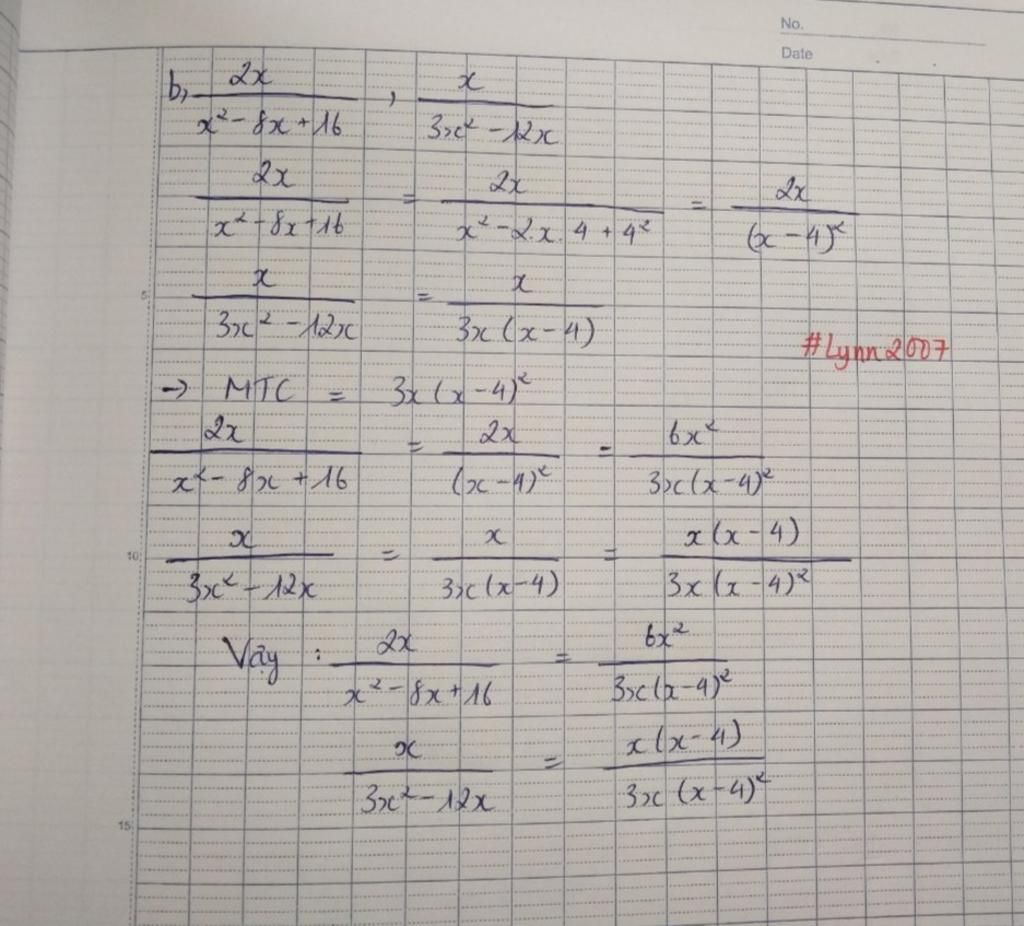 No.
Date
b, 2x/(x² - 8x + 16) , x/(3x² - 12x)
2x/(x² - 8x + 16) = 2x/(x² - 2.x.4 + 4²) = 2x/(x - 4)²
5
x/(3x² - 12x) = x/(3x(x - 4))
#Lynn2007
→ MTC = 3x(x - 4)²
2x/(x² - 8x + 16) = 2x/(x - 4)² = 6x²/(3x(x - 4)²)
10
x/(3x² - 12x) = x/(3x(x - 4)) = x(x - 4)/(3x(x - 4)²)
Vậy : 2x/(x² - 8x + 16) = 6x²/(3x(x - 4)²)
x/(3x² - 12x) = x(x - 4)/(3x(x - 4)²)
15